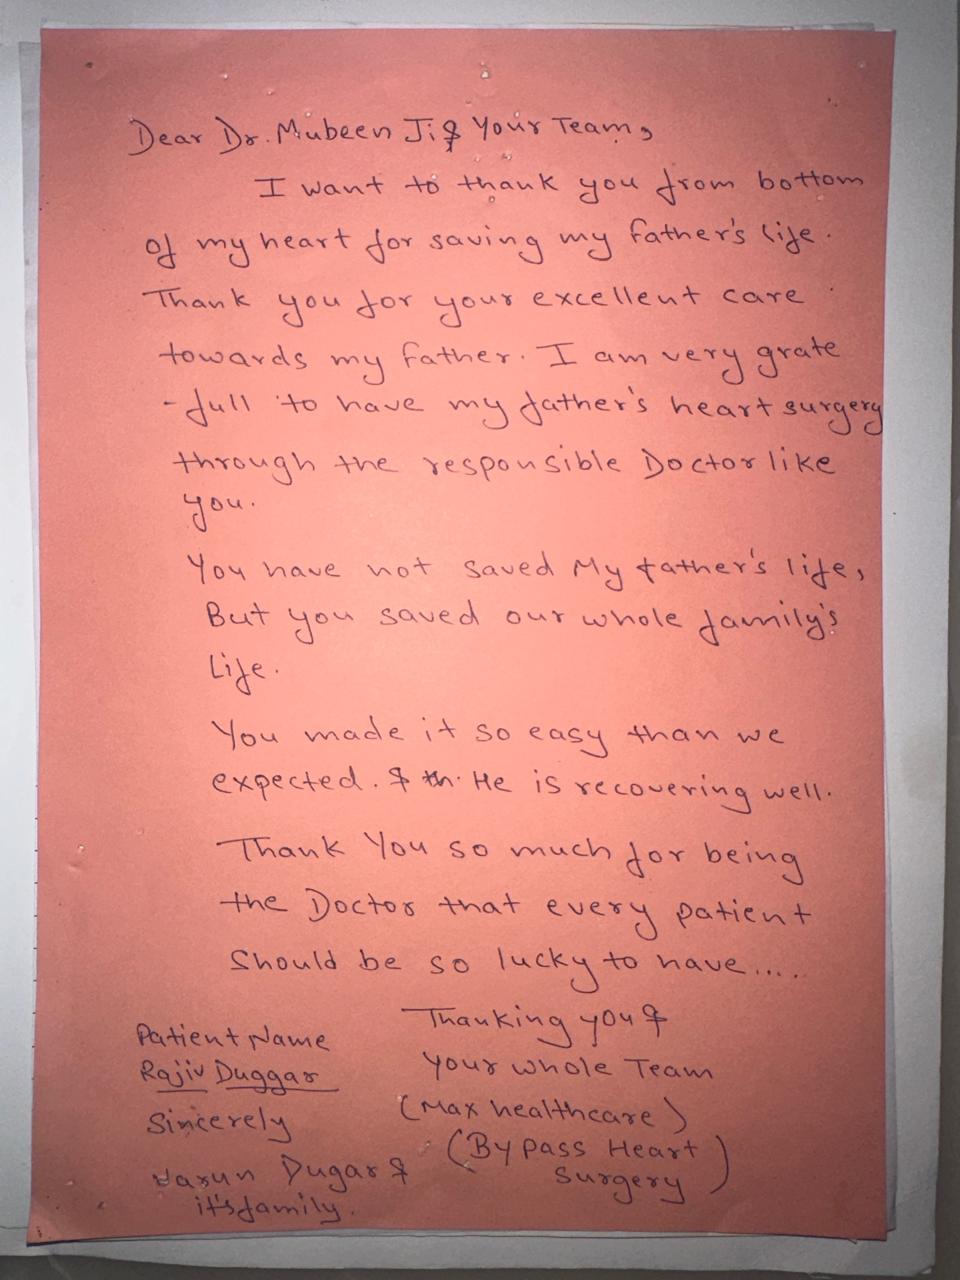 Dear Dr. Mubeen Ji & Your Team,
I want to thank you from bottom
of my heart for saving my father's life.
Thank you for your excellent care
towards my father. I am very grate
-full to have my father's heart surgery
through the responsible Doctor like
you.
You have not saved My father's life,
But you saved our whole family's
Life.
You made it so easy than we
expected. & th. He is recovering well.
Thank You so much for being
the Doctor that every patient
Should be so lucky to have.....
Thanking you &
your whole Team
(Max healthcare)
(By pass Heart
Surgery)
Patient Name
Rajiv Duggar
Sincerely
Varun Dugar &
it's family.